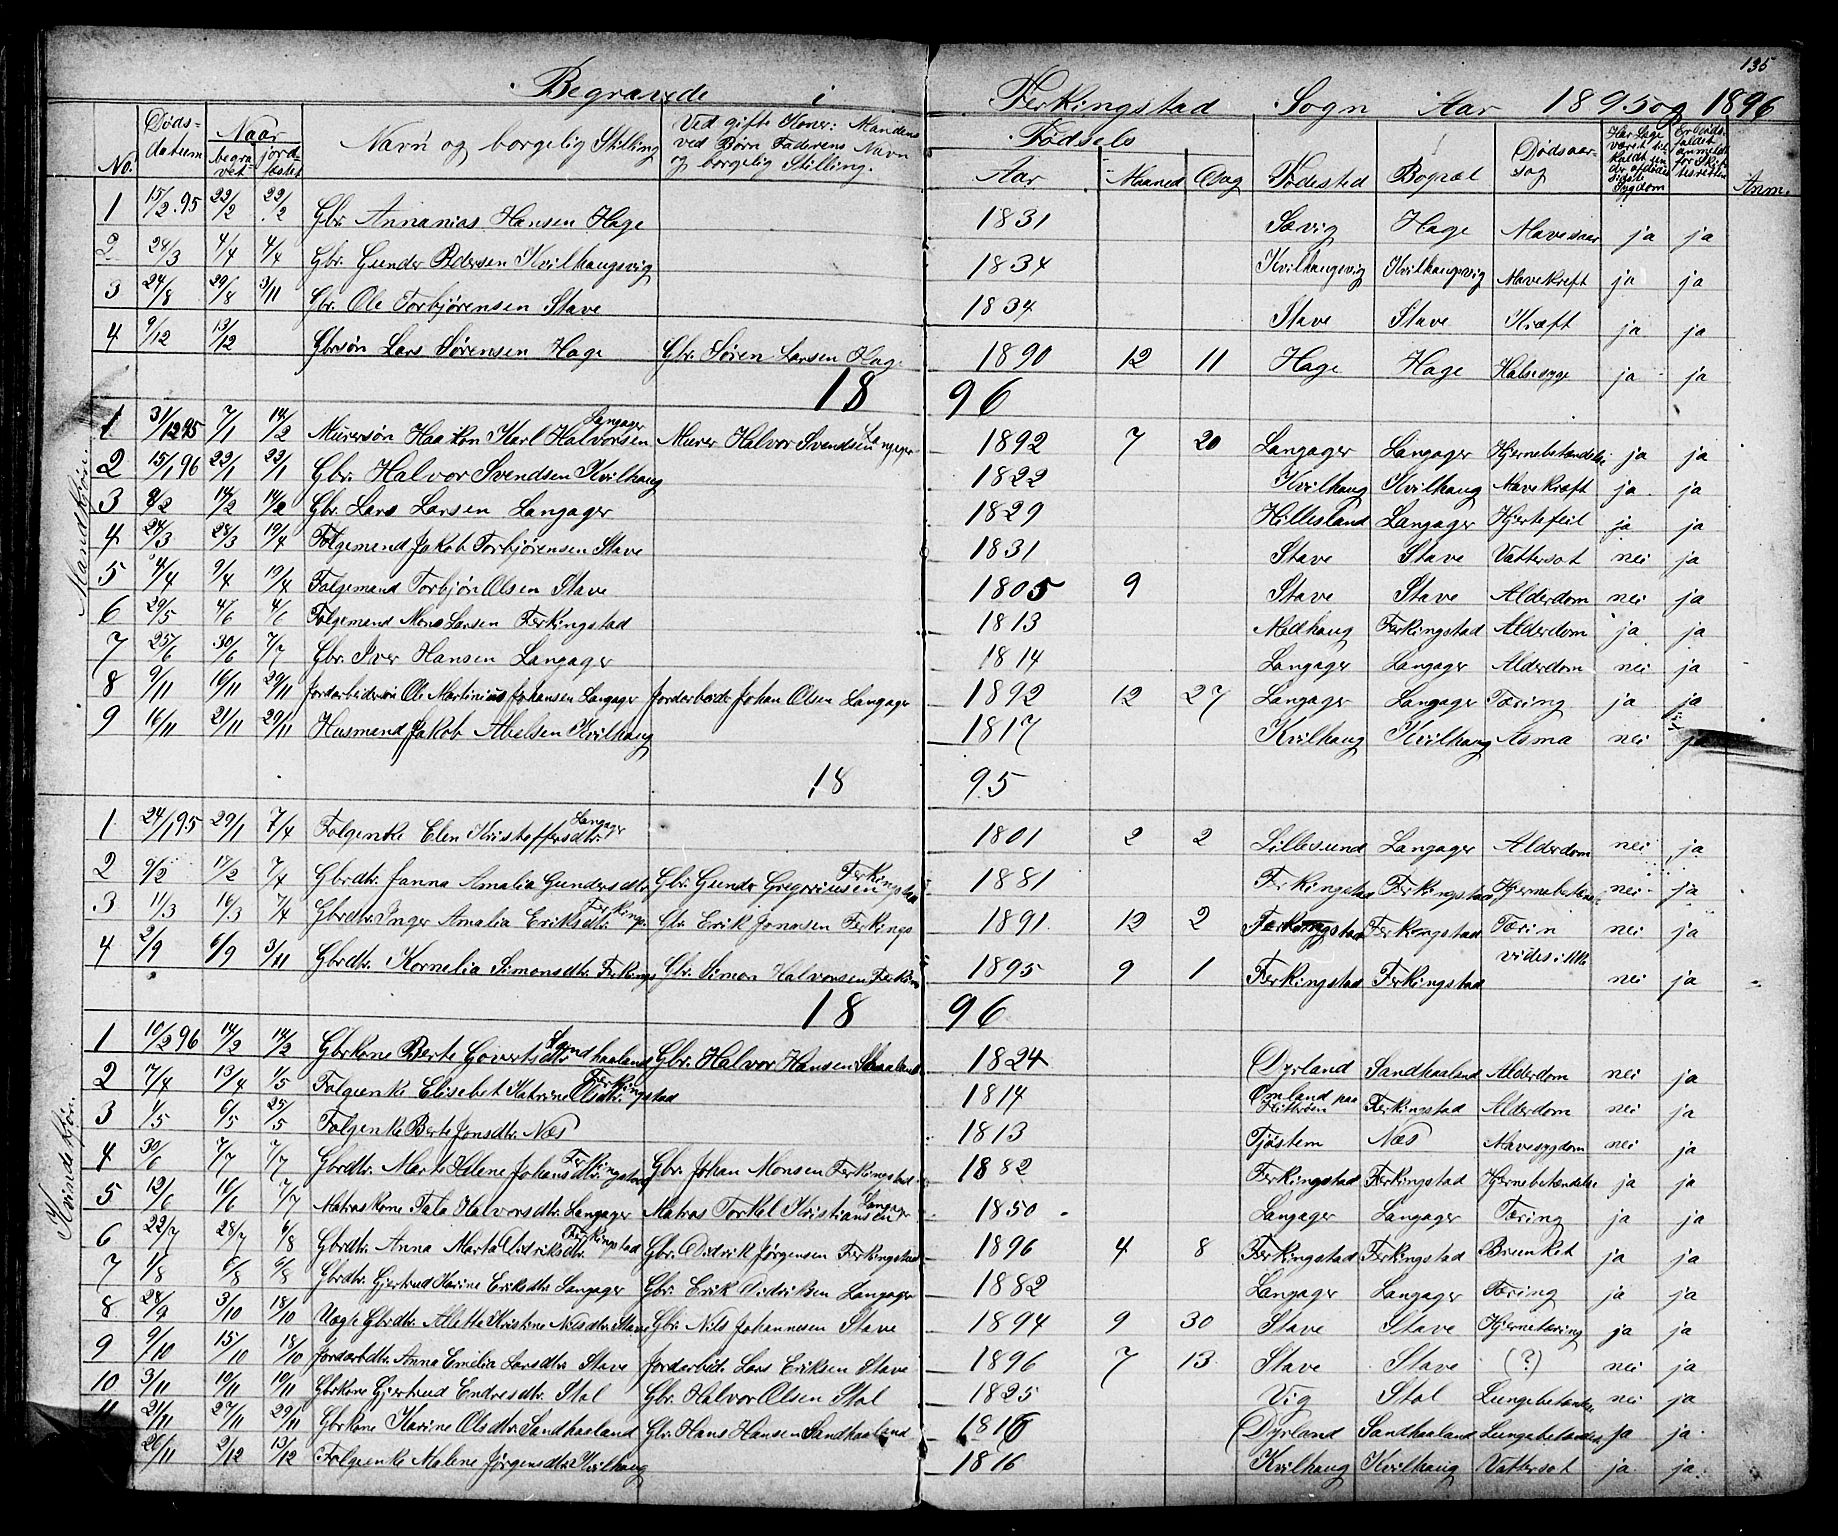 135
Begravede i Ferkingstad Sogn Aar 1895 og 1896
No. Døds-datum Naar begravet jordfæstet Navn og borgelig Stilling Ved gifte Koner: Mandens ved Børn Faderens Navn og borgelig Stilling. Fødsels Aar Maaned Dag Fødested Bopæl Dødsaarsag Har Læge været tilkaldt under afdødes sidste Sygdom Er Dødsfaldet anmeldt for Skifteretten Anm.
Mandkjøn
1 15/2 95 22/2 22/2 Gbr. Annanias Hansen Hage 1831 Sævig Hage Mavesaar ja ja
2 24/3 4/4 4/4 Gbr. Gunder Pedersen Kvilhaugsvig 1834 Kvilhaugsvig Kvilhaugsvig Mavekræft ja ja
3 24/8 29/8 3/11 Gbr. Ole Torbjørensen Stave 1834 Stave Stave Kræft ja ja
4 9/12 13/12 Gbrsøn Lars Sørensen Hage Gbr. Søren Larsen Hag. 1890 12 11 Hage Hage Halssyge ja ja
1896
1 31/12 95 7/1 14/2 Murersøn Haakon Karl Halvorsen Langager Murer Halvor Svendsen Langager 1892 7 20 Langager Langager Hjernebetændelse ja ja
2 15/1 96 22/1 22/1 Gbr. Halvor Svendsen Kvilhaug 1822 Kvilhaug Kvilhaug Mavekræft ja ja
3 8/2 14/2 14/2 Gbr. Lars Larsen Langager 1829 Hillesland Langager Hjertefeil ja ja
4 24/3 28/3 19/4 Følgemand Jakob Torbjørensen Stave 1831 Stave Stave Vattersot nei ja
5 4/4 9/4 19/4 Følgemand Torbjørn Olsen Stave 1805 9 Stave Stave Alderdom nei ja
6 29/5 4/6 4/6 Følgemand Mons Larsen Ferkingstad 1813 Medhaug Ferkingstad Alderdom ja ja
7 25/6 30/6 7/7 Gbr. Iver Hansen Langager 1814 Langager Langager Alderdom nei ja
8 9/11 16/11 29/11 Jordarbeidersøn Ole Martinius Johansen Langager Jordarbeidr Johan Olsen Langager 1892 12 27 Langager Langager Tæring ja ja
9 16/11 21/11 29/11 Husmand Jakob Abelsen Kvilhaug 1817 Kvilhaug Kvilhaug Asma nei ja
1895
Kvindekjøn
1 24/1 95 29/1 7/4 Følgenke Elen Kristoffersdtr. Langager 1801 2 2 Lillesund Langager Alderdom nei ja
2 9/2 17/2 7/4 Gbrdtr. Janna Amalia Gundersdtr. Gbr. Gunder Gregoriusen Ferkingstad 1881 Ferkingstad Ferkingstad Hjernebetænd. nei ja
3 11/3 16/3 7/4 Gbrdtr. Inger Amalia Eriksdtr. Ferkings. Gbr. Erik Jonasen Ferkings 1891 12 2 Ferkingstad Ferkingstad Tærin nei ja
4 2/9 6/9 3/11 Gbrdtr. Kornelia Simonsdtr. Ferkings Gbr. Simon Halvorsen Ferkins 1895 9 1 Ferkingstad Ferkingstad vides i nei ja
1896
1 10/2 96 14/2 14/2 Gbrkone Berte Govertsdtr. Sandhaaland Gbr. Halvor Hansen Shaaland 1824 Dyrland Sandhaaland Alderdom nei ja
2 7/4 13/4 1/5 Følgenke Elisebet Katrine Olsdtr. Ferkingstad 1814 Ømland paa Hitterøen Ferkingstad Alderdom nei ja
3 1/5 6/5 25/5 Følgenke Berte Jonsdtr. Næs 1813 Tjøstem Næs Mavesygdom nei ja
4 30/6 7/7 7/7 Gbrdtr. Marte Helene Johansdtr. Ferkingstad Gbr. Johan Monsen Ferkingstad 1882 Ferkingstad Ferkingstad Hjernebetændelse ja ja
5 12/6 16/6 7/7 Matroskone Tala Halvorsdtr. Langager Matros Torkel Kristiansen Langager 1850 Langager Langager Tæring ja ja
6 22/7 28/7 6/8 Gbrdtr. Anna Marta Didriksdtr. Ferkingstad Gbr. Didrik Jørgensen Ferkingstad 1896 4 8 Ferkingstad Ferkingstad Brunket ja ja
7 1/8 6/8 6/8 Gbrdtr. Gjertrud Karine Eriksdtr. Langager Gbr. Erik Didriksen Langager 1882 Langager Langager Tæring ja ja
8 28/9 3/10 18/10 Uægte Gbrdtr. Alette Kristine Nilsdtr. Stave Gbr. Nils Johannesen Stave 1894 9 30 Stave Stave Hjernetæring ja ja
9 9/10 15/10 18/10 Jordarbdtr. Anna Emilia Larsdtr. Stave Jordarbeidr. Lars Eriksen Stave 1896 7 13 Stave Stave (?) nei ja
10 3/11 10/11 10/11 Gbrkone Gjertrud Endresdtr. Stol Gbr. Halvor Olsen Stol 1825 Vig Stol Lungebetændse nei ja
11 21/11 27/11 29/11 Gbrkone Karine Olsdtr. Sandhaaland Gbr. Hans Hansen Sandhaaland 1816 Dyrland Sandhaaland Lungebetændels ja ja
26/11 2/12 13/12 Følgenke Malene Jørgensdtr. Kvilhaug 1816 Kvilhaug Kvilhaug Vattersot ja ja